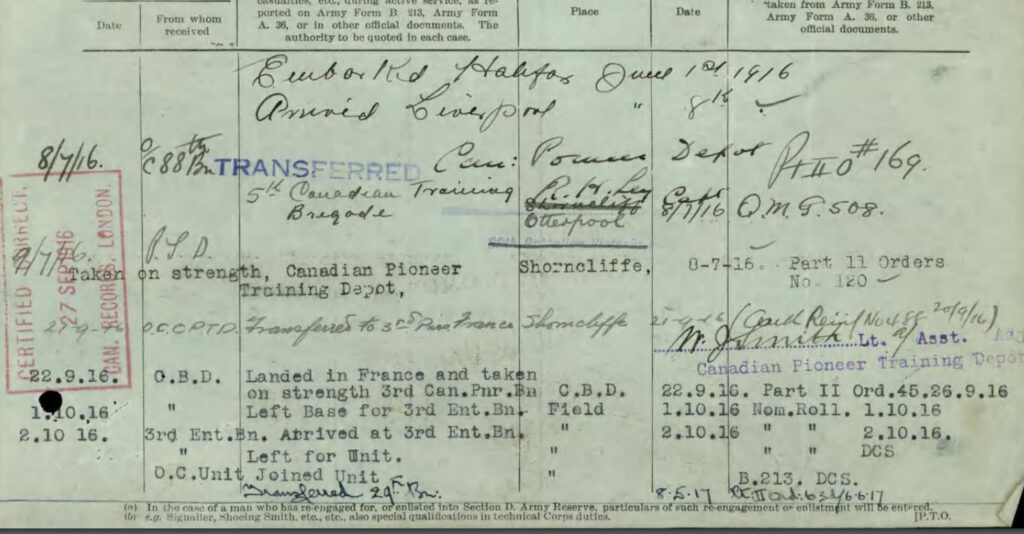 casualties, etc., during active service, as re-
ported on Army Form B 213, Army Form
A. 36, or in other official documents. The
authority to be quoted in each case.
Date
From whom
received
Place
Date
taken from Army Form B. 213,
Army Form A. 36, or other
official documents.
Embarked Halifax June 1st 1916
Arrived Liverpool " 8th
8/7/16. O/C 88th Bn. TRANSFERRED Can: Pioneer Depot Pt II O #169.
5th Canadian Training
Brigade
Shorncliffe
Otterpool
8/7/16 Q.M.G. 508.
9/7/16 P.T.D.
Taken on strength, Canadian Pioneer Shorncliffe, 8-7-16. Part 11 Orders
Training Depot, No. 120
O.C.C.P.T.D. Transferred to 3rd France Shorncliffe 20/9/16)
W. J. Smith Lt. Asst.
Canadian Pioneer Training Depot
CERTIFIED CORRECT.
27 SEP 1916
CAN. RECORDS, LONDON.
22.9.16. C.B.D. Landed in France and taken
on strength 3rd Can.Pnr.Bn C.B.D. 22.9.16. Part II Ord.45.26.9.16
1.10.16 " Left Base for 3rd Ent.Bn. Field 1.10.16 Nom.Roll. 1.10.16
2.10 16. 3rd Ent.Bn. Arrived at 3rd Ent.Bn. " 2.10.16 " " 2.10.16.
" Left for Unit. " " " DCS
O.C.Unit Joined Unit " B.213. DCS.
Transferred 29th Bn. 8.5.17 Pt II Ord. 63 d/6.6.17
(a) In the case of a man who has re-engaged for, or enlisted into Section D. Army Reserve, particulars of such re-engagement or enlistment will be entered.
(b) e.g. Signaller, Shoeing Smith, etc., etc., also special qualifications in technical Corps duties.
[P.T.O.